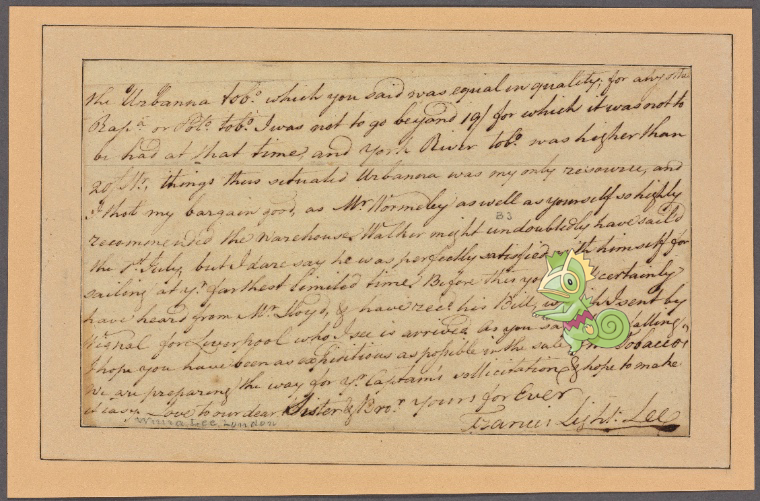 the Urbanna tobo. which you said was equal in quality, for any other
Rapa. or Poto. tobo. I was not to go beyond 19/ for which it was not to
be had at that time, and York River tobo. was higher than
20/. Sr., things thus situated Urbanna was my only resource, and
I thot my bargain good, as Mr Wormeley as well as yourself so highly
recommended the Warehouse. Walker might undoubtedly have sail'd
B3
the 1st July, but I dare say he was perfectly satisfied with himself for
sailing at yr. farthest limited time. Before this you certainly
have heard from Mr. Lloyd, & have recd his Bill, I sent by
Vignal for Liverpool who I see is arrived as you say falling,
I hope you have been as expeditious as possible in the sale Tobacco,
We are preparing the way for yr. Captain's sollicitation & hope to make
it easy. Love to our dear Sister & Bror. yours for Ever
Francis Light. Lee
Lee, London